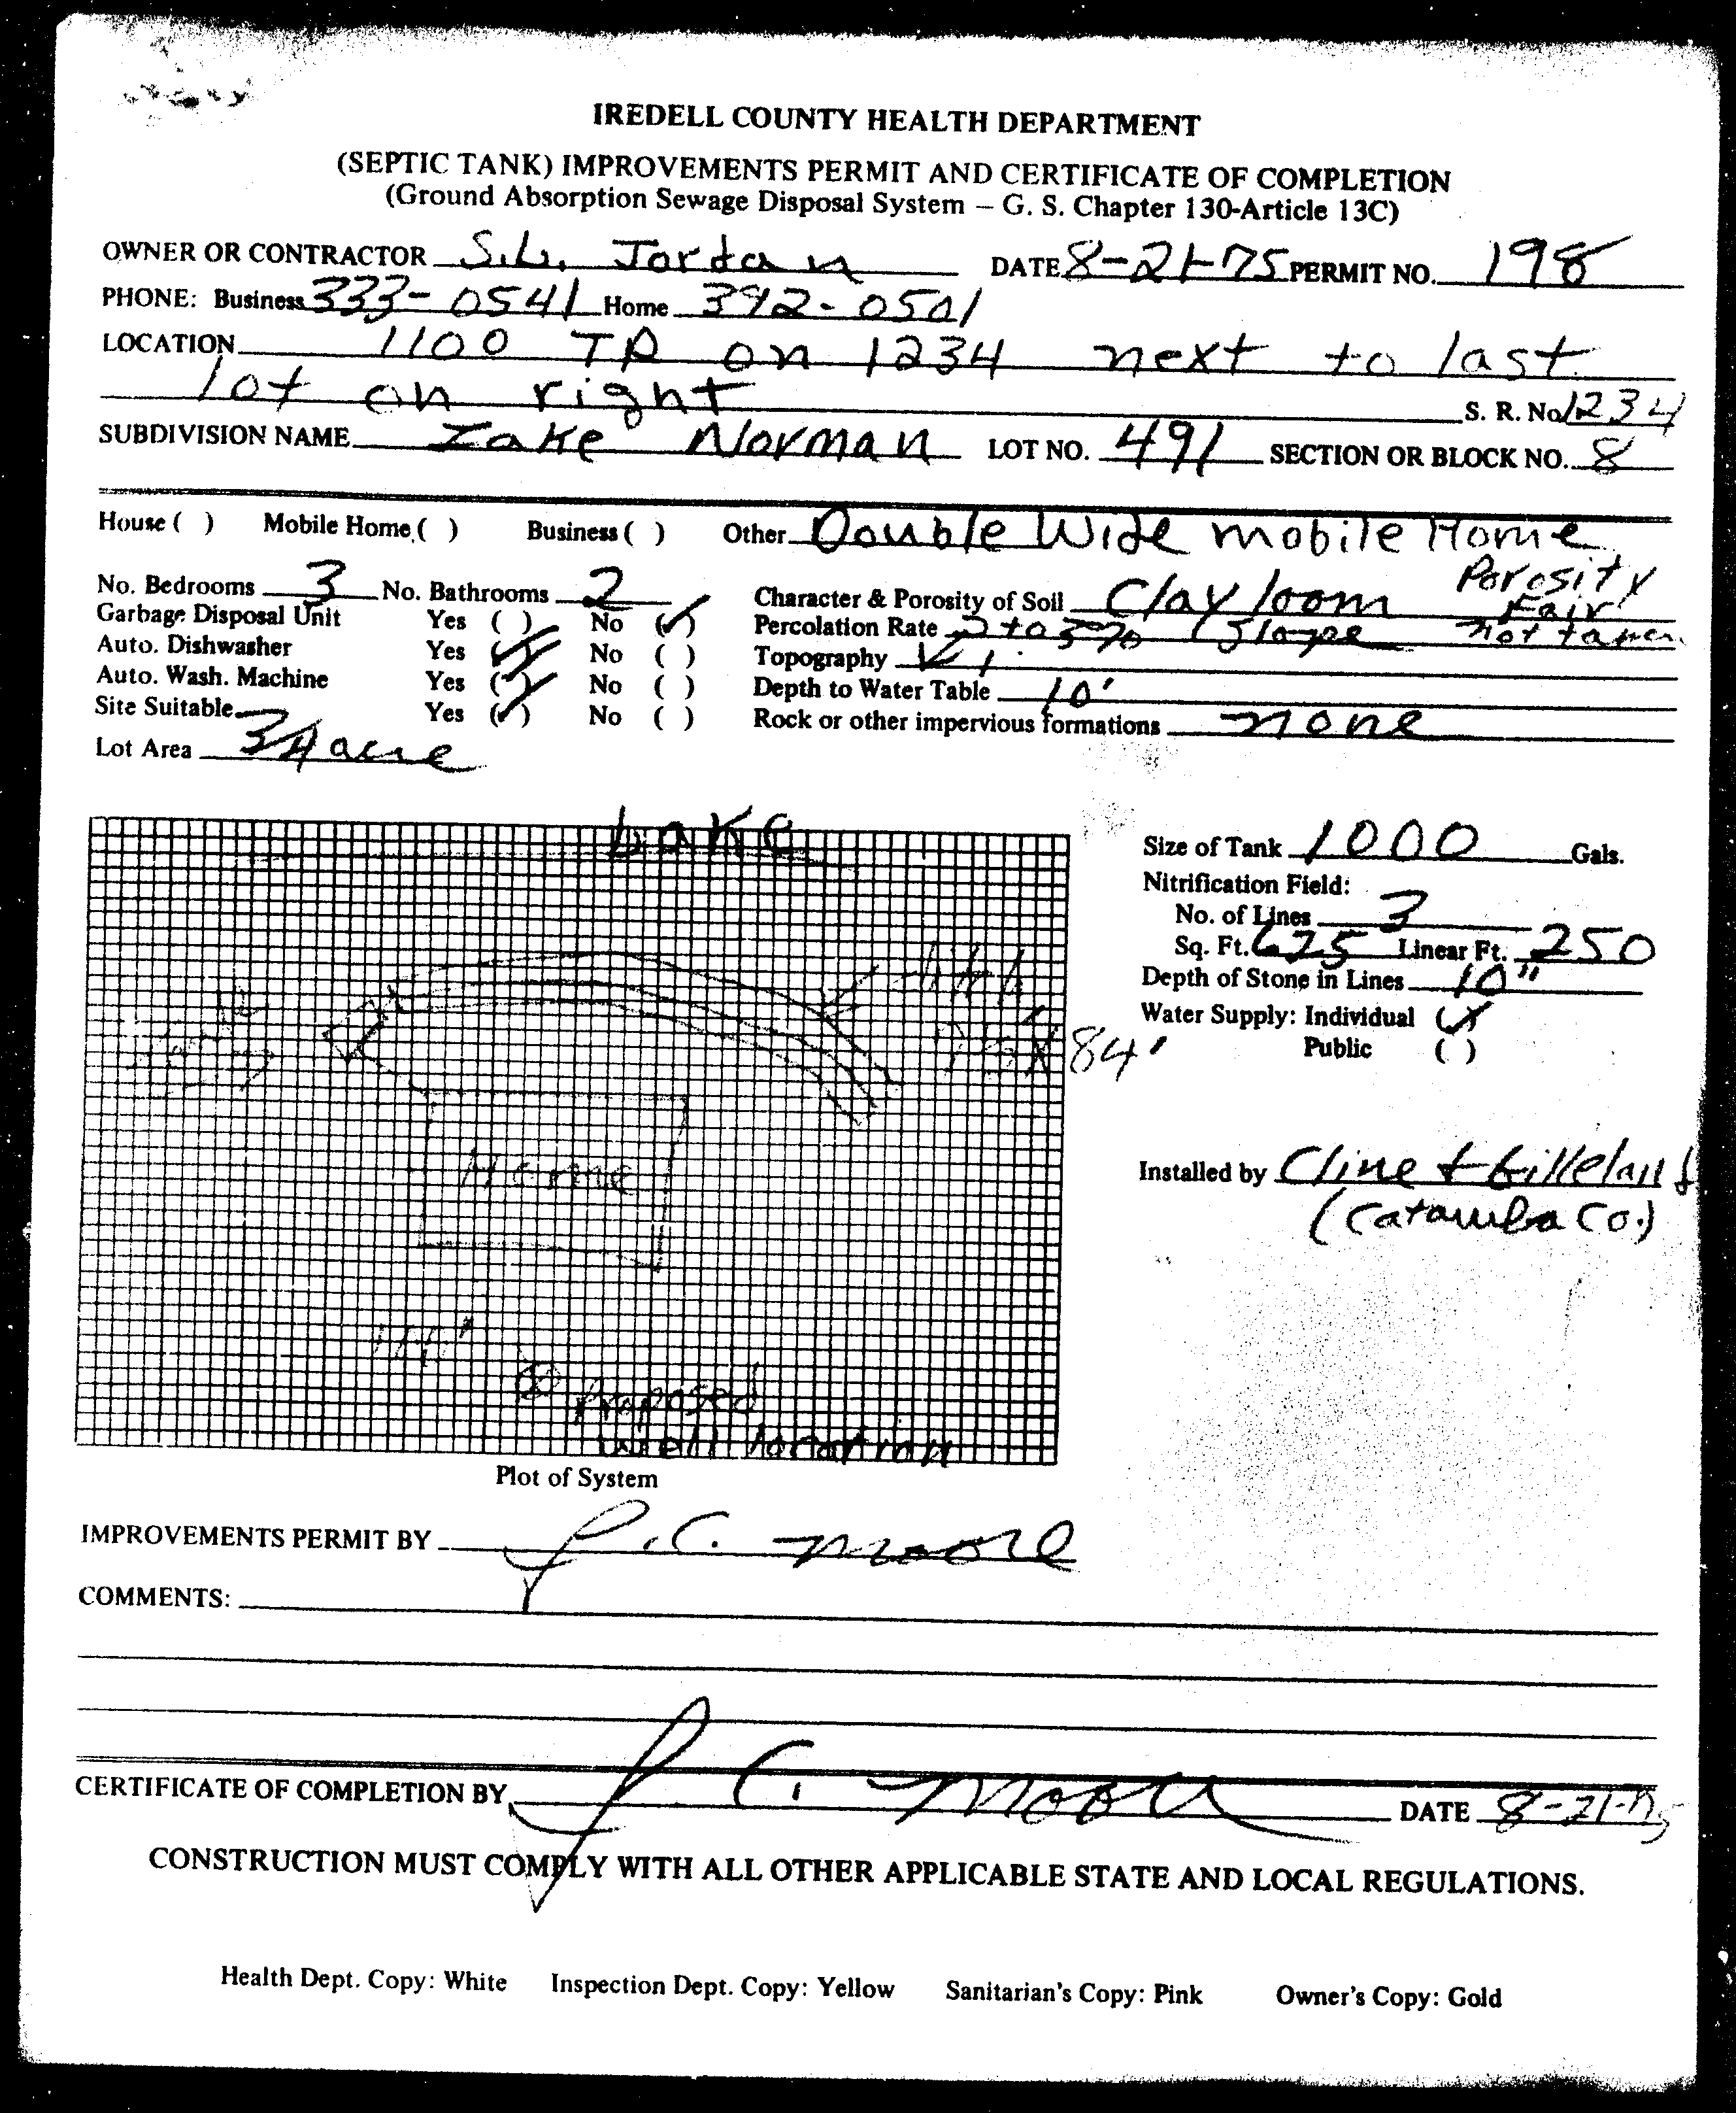 IREDELL COUNTY HEALTH DEPARTMENT
(SEPTIC TANK) IMPROVEMENTS PERMIT AND CERTIFICATE OF COMPLETION
(Ground Absorption Sewage Disposal System – G. S. Chapter 130-Article 13C)
OWNER OR CONTRACTOR S.L. Jordan DATE 8-21-75 PERMIT NO. 198
PHONE: Business 333-0541 Home 392-0501
LOCATION 1100 TR on 1234 next to last
lot on right S. R. No. 1234
SUBDIVISION NAME Lake Norman LOT NO. 491 SECTION OR BLOCK NO. 8
House ( ) Mobile Home ( ) Business ( ) Other Double Wide mobile Home
No. Bedrooms 3 No. Bathrooms 2 Character & Porosity of Soil Clay loom Porosity Fair
Garbage Disposal Unit Yes ( ) No (✓) Percolation Rate not taken
Auto. Dishwasher Yes (✓) No ( ) Topography 2 to 5% Slope
Auto. Wash. Machine Yes (✓) No ( ) Depth to Water Table 10'
Site Suitable Yes (✓) No ( ) Rock or other impervious formations none
Lot Area 3/4 acre
Lake
Size of Tank 1000 Gals.
Nitrification Field:
No. of Lines 3
Sq. Ft. 625 Linear Ft. 250
Depth of Stone in Lines 10"
Water Supply: Individual (✓)
Public ( )
84'
Home
Installed by Cline & Gilleland
(Catawba Co.)
Proposed
well location
Plot of System
IMPROVEMENTS PERMIT BY J.C. Moore
COMMENTS:
CERTIFICATE OF COMPLETION BY J.C. Moore DATE 8-21-75
CONSTRUCTION MUST COMPLY WITH ALL OTHER APPLICABLE STATE AND LOCAL REGULATIONS.
Health Dept. Copy: White Inspection Dept. Copy: Yellow Sanitarian's Copy: Pink Owner's Copy: Gold